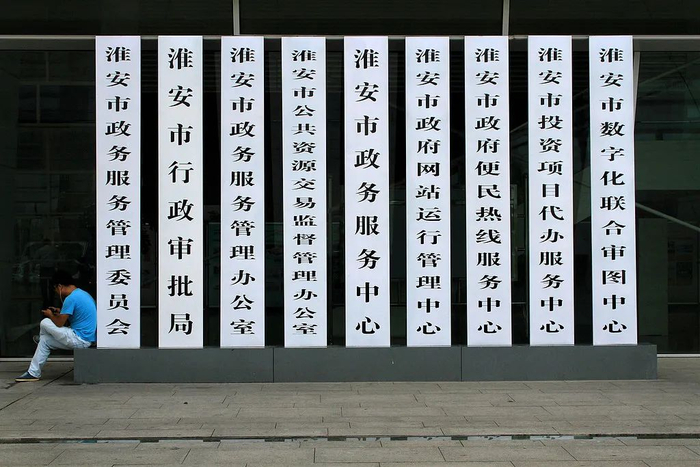 淮安市政务服务管理委员会
淮安市行政审批局
淮安市政务服务管理办公室
淮安市公共资源交易监督管理办公室
淮安市政务服务中心
淮安市政府网站运行管理中心
淮安市政府便民热线服务中心
淮安市投资项目代办服务中心
淮安市数字化联合审图中心